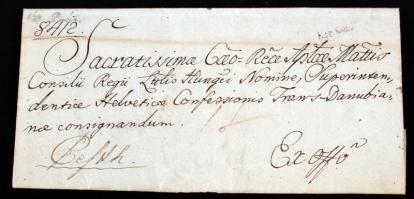 8412.
Sacratissimæ Cæo-Reæ Aptoæ Mattis
Consilii Regii Lttlis Hungci Nomine, Superinten,
dentiæ Helveticæ Confessionis Trans-Danubia-
næ consignandum.
Pesth.
Ex offõ